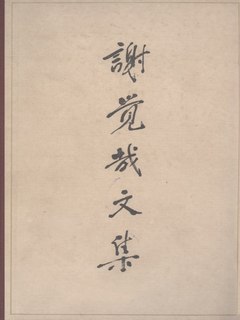 謝觉哉文集